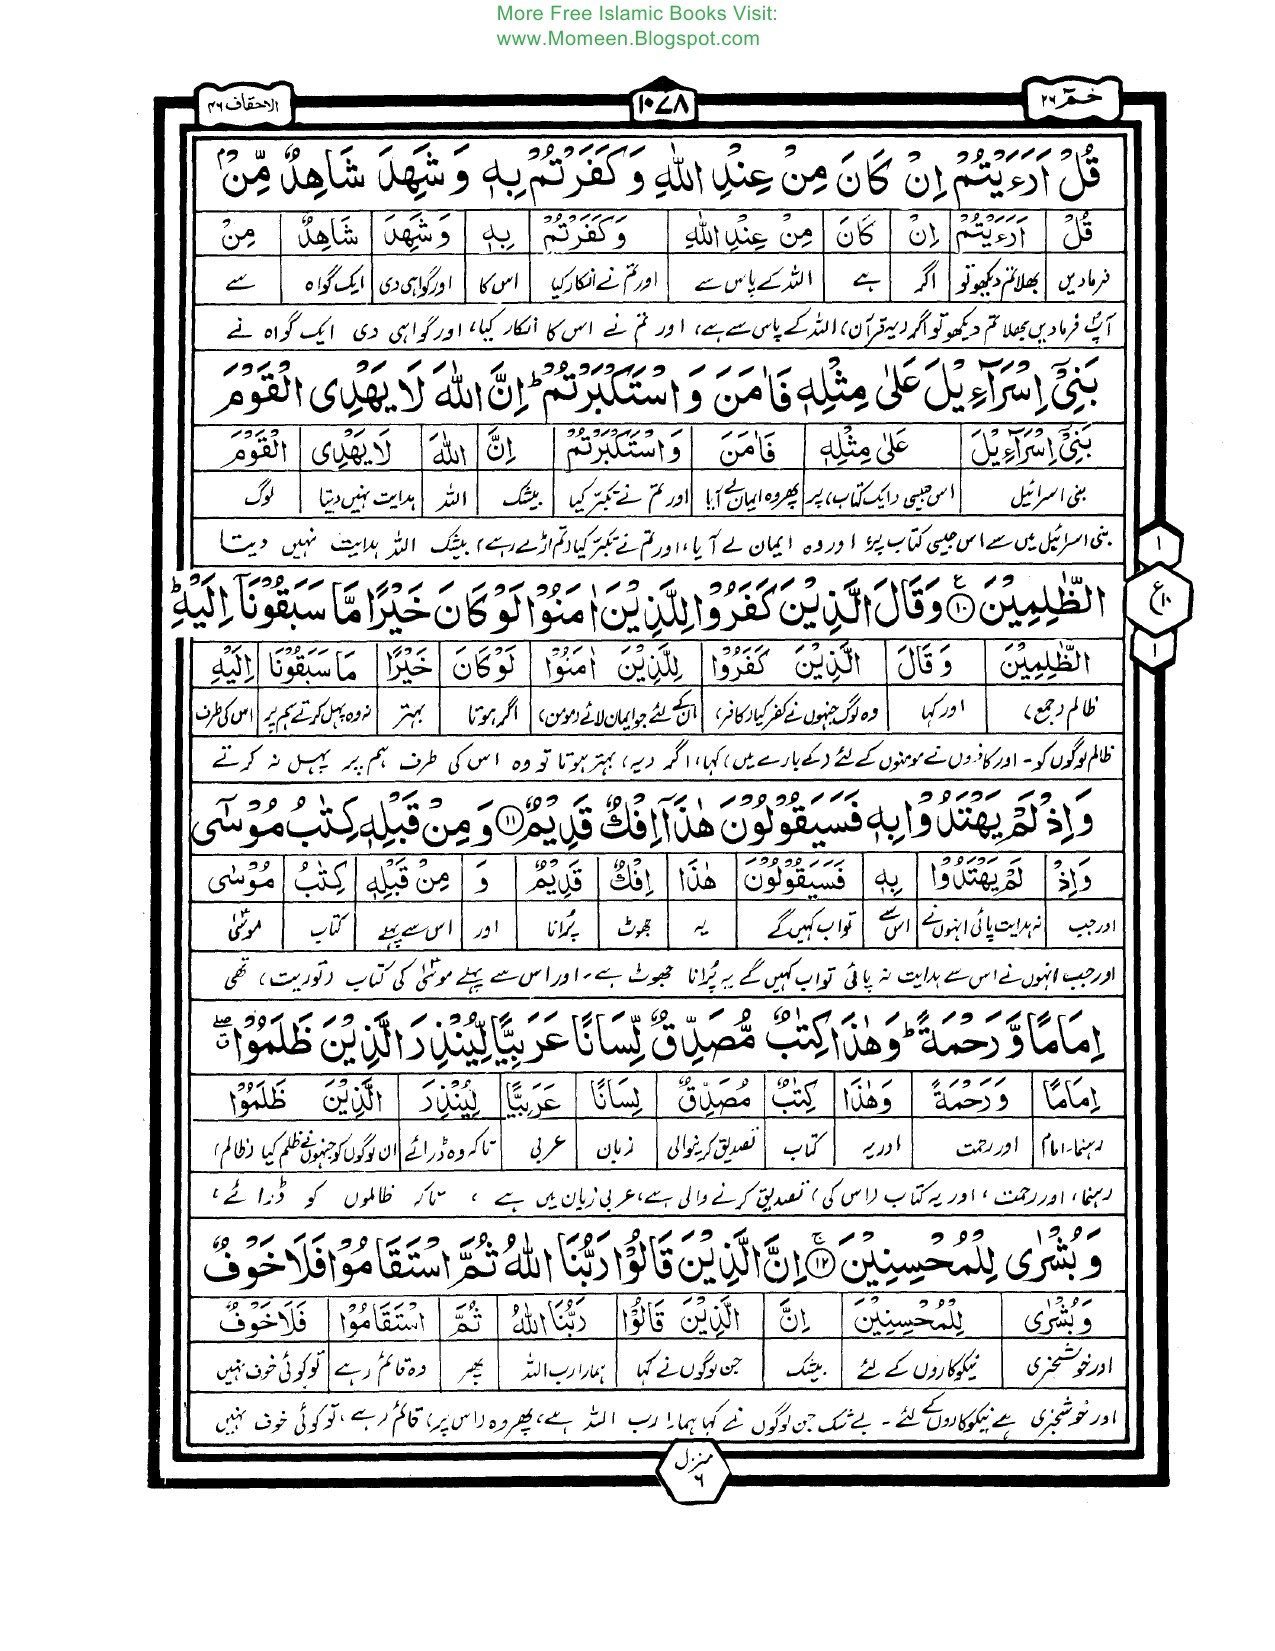 More Free Islamic Books Visit:
www.Momeen.Blogspot.com
الاحقاف ۴۶ ۱۰۷۸ حٰمٓ ۲۶
قُلْ اَرَءَيْتُمْ اِنْ كَانَ مِنْ عِنْدِ اللّٰهِ وَكَفَرْتُمْ بِهٖ وَشَهِدَ شَاهِدٌ مِّنْۢ
قُلْ اَرَءَيْتُمْ اِنْ كَانَ مِنْ عِنْدِ اللّٰهِ وَكَفَرْتُمْ بِهٖ وَشَهِدَ شَاهِدٌ مِنْ
فرمادیں بھلا تم دیکھو تو اگر ہے اللہ کے پاس سے اور تم نے انکار کیا اس کا اور گواہی دی ایک گواہ سے
آپؐ فرمادیں بھلا تم دیکھو تو اگر (یہ قرآن) اللہ کے پاس سے ہے، اور تم نے اس کا انکار کیا، اور گواہی دی ایک گواہ نے
بَنِيْٓ اِسْرَآءِيْلَ عَلٰى مِثْلِهٖ فَاٰمَنَ وَاسْتَكْبَرْتُمْ ؕ اِنَّ اللّٰهَ لَا يَهْدِى الْقَوْمَ
بَنِيْٓ اِسْرَآءِيْلَ عَلٰى مِثْلِهٖ فَاٰمَنَ وَاسْتَكْبَرْتُمْ اِنَّ اللّٰهَ لَا يَهْدِى الْقَوْمَ
بنی اسرائیل اس جیسی (ایک کتاب) پر پھر وہ ایمان لے آیا اور تم نے تکبر کیا بیشک اللہ ہدایت نہیں دیتا لوگ
بنی اسرائیل میں سے اس جیسی کتاب پر، اور وہ ایمان لے آیا، اور تم نے تکبر کیا (تم اڑے رہے) بیشک اللہ ہدایت نہیں دیتا
الظّٰلِمِيْنَ ۝۱۰ وَقَالَ الَّذِيْنَ كَفَرُوْا لِلَّذِيْنَ اٰمَنُوْا لَوْ كَانَ خَيْرًا مَّا سَبَقُوْنَآ اِلَيْهِ ؕ
الظّٰلِمِيْنَ وَقَالَ الَّذِيْنَ كَفَرُوْا لِلَّذِيْنَ اٰمَنُوْا لَوْ كَانَ خَيْرًا مَا سَبَقُوْنَا اِلَيْهِ
ظالم (جمع) اور کہا وہ لوگ جنہوں نے کفر کیا (کافر) ان کے لئے جو ایمان لائے (مومن) اگر ہوتا بہتر نہ وہ پہل کرتے ہم پر اس کی طرف
ظالم لوگوں کو۔ اور کافروں نے مومنوں کے لئے (کے بارے میں) کہا، اگر (یہ) بہتر ہوتا تو وہ اس کی طرف ہم پر پہل نہ کرتے
وَاِذْ لَمْ يَهْتَدُوْا بِهٖ فَسَيَقُوْلُوْنَ هٰذَآ اِفْكٌ قَدِيْمٌ ۝۱۱ وَمِنْ قَبْلِهٖ كِتٰبُ مُوْسٰٓى
وَاِذْ لَمْ يَهْتَدُوْا بِهٖ فَسَيَقُوْلُوْنَ هٰذَا اِفْكٌ قَدِيْمٌ وَ مِنْ قَبْلِهٖ كِتٰبُ مُوْسٰى
اور جب نہ ہدایت پائی انہوں نے اس سے تو اب کہیں گے یہ جھوٹ پُرانا اور اس سے پہلے کتاب موسیٰؑ
اور جب انہوں نے اس سے ہدایت نہ پائی تو اب کہیں گے یہ پُرانا جھوٹ ہے۔ اور اس سے پہلے موسیٰؑ کی کتاب (توریت) تھی
اِمَامًا وَّرَحْمَةً ؕ وَهٰذَا كِتٰبٌ مُّصَدِّقٌ لِّسَانًا عَرَبِيًّا لِّيُنْذِرَ الَّذِيْنَ ظَلَمُوْا
اِمَامًا وَرَحْمَةً وَهٰذَا كِتٰبٌ مُصَدِّقٌ لِسَانًا عَرَبِيًّا لِيُنْذِرَ الَّذِيْنَ ظَلَمُوْا
رہنما۔امام اور رحمت اور یہ کتاب تصدیق کرنیوالی زبان عربی تاکہ وہ ڈرائے ان لوگوں کو جنہوں نے ظلم کیا (ظالم)
رہنما، اور رحمت، اور یہ کتاب (اس کی) تصدیق کرنے والی ہے، عربی زبان میں ہے، تاکہ ظالموں کو ڈرائے،
وَبُشْرٰى لِلْمُحْسِنِيْنَ ۝۱۲ اِنَّ الَّذِيْنَ قَالُوْا رَبُّنَا اللّٰهُ ثُمَّ اسْتَقَامُوْا فَلَا خَوْفٌ
وَبُشْرٰى لِلْمُحْسِنِيْنَ اِنَّ الَّذِيْنَ قَالُوْا رَبُّنَا اللّٰهُ ثُمَّ اسْتَقَامُوْا فَلَا خَوْفٌ
اور خوشخبری نیکوکاروں کے لئے بیشک جن لوگوں نے کہا ہمارا رب اللہ پھر وہ قائم رہے تو کوئی خوف نہیں
اور خوشخبری ہے نیکوکاروں کے لئے۔ بے شک جن لوگوں نے کہا ہمارا رب اللہ ہے، پھر وہ (اس پر) قائم رہے، تو کوئی خوف نہیں
۱
ع ۱۰
۱
منزل ۶